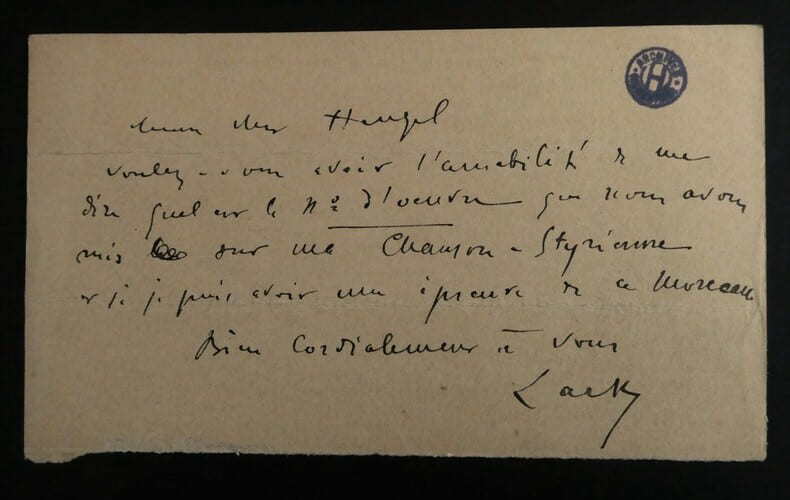 ARCHIVES
H
Mon cher Heugel
voulez-vous avoir l'amabilité de me
dire quel est le Nº d'oeuvre que nous avons
mis sur ma Chanson-Styrienne
et si je puis avoir une épreuve de ce Morceau
Bien cordialement à vous
Lack